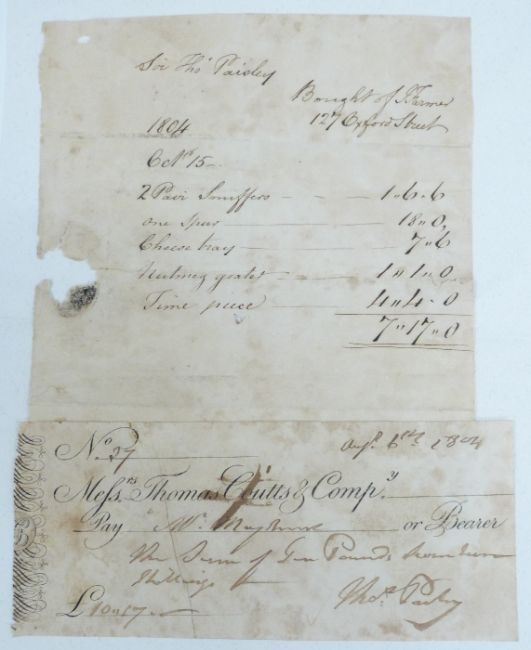 Sir Thos Paisley
Bought of J Farmer
127 Oxford Street
1804
Octr 15
2 Pair Snuffers 1 " 6 " 6
one spur 18 " 0
Cheese tray 7 " 6
Nutmeg grater 1 " 1 " 0
Time piece 4 " 4 " 0
7 " 17 " 0
No. 37 Augt. 6th 1804
Messrs. Thomas Coutts & Compy.
Pay Mr. or Bearer
The Sum of Ten Pounds Seventeen
Shillings
£10 " 17 " Thos. Pasley